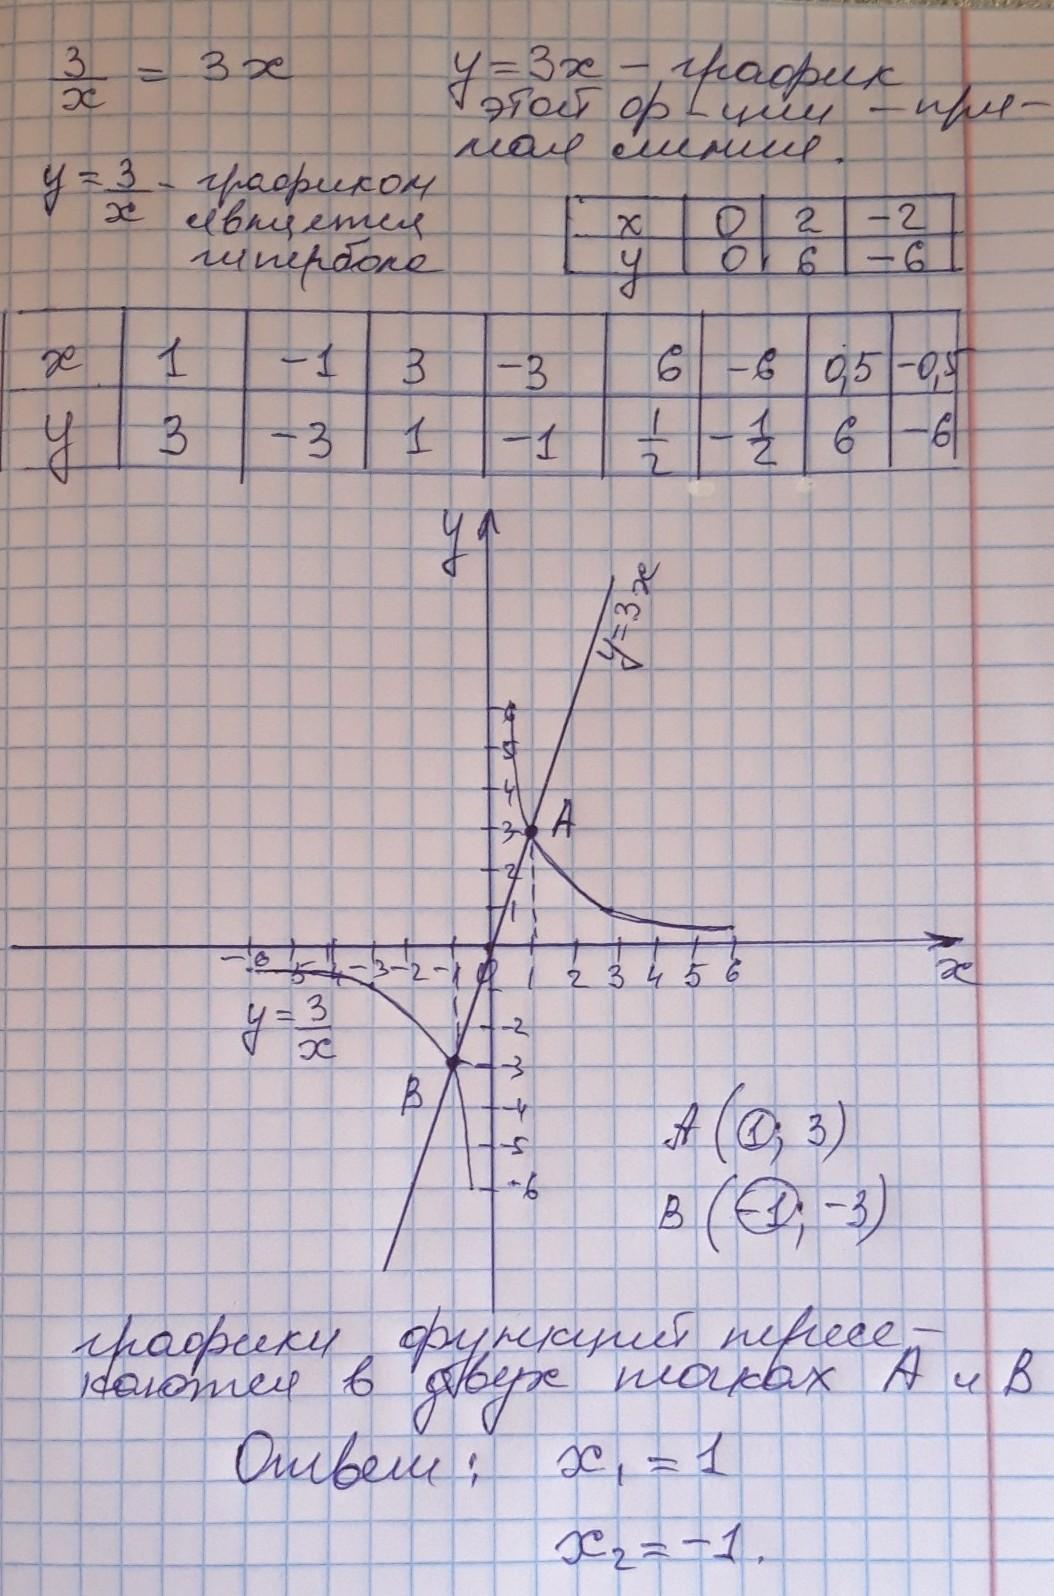 3/x = 3x
y = 3/x - графиком
является
гипербола
y = 3x - график
этой ф-ции - пря-
мая линия.
x 0 2 -2
y 0 6 -6
x 1 -1 3 -3 6 -6 0,5 -0,5
y 3 -3 1 -1 1/2 -1/2 6 -6
y
y=3x
6
5
4
3 A
2
1
-6 -5 -4 -3 -2 -1 0 1 2 3 4 5 6 x
y = 3/x
-2
-3
B
-4
-5
-6
A (1; 3)
B (-1; -3)
графики функций пересе-
каются в двух точках A и B
Ответ: x₁ = 1
x₂ = -1.